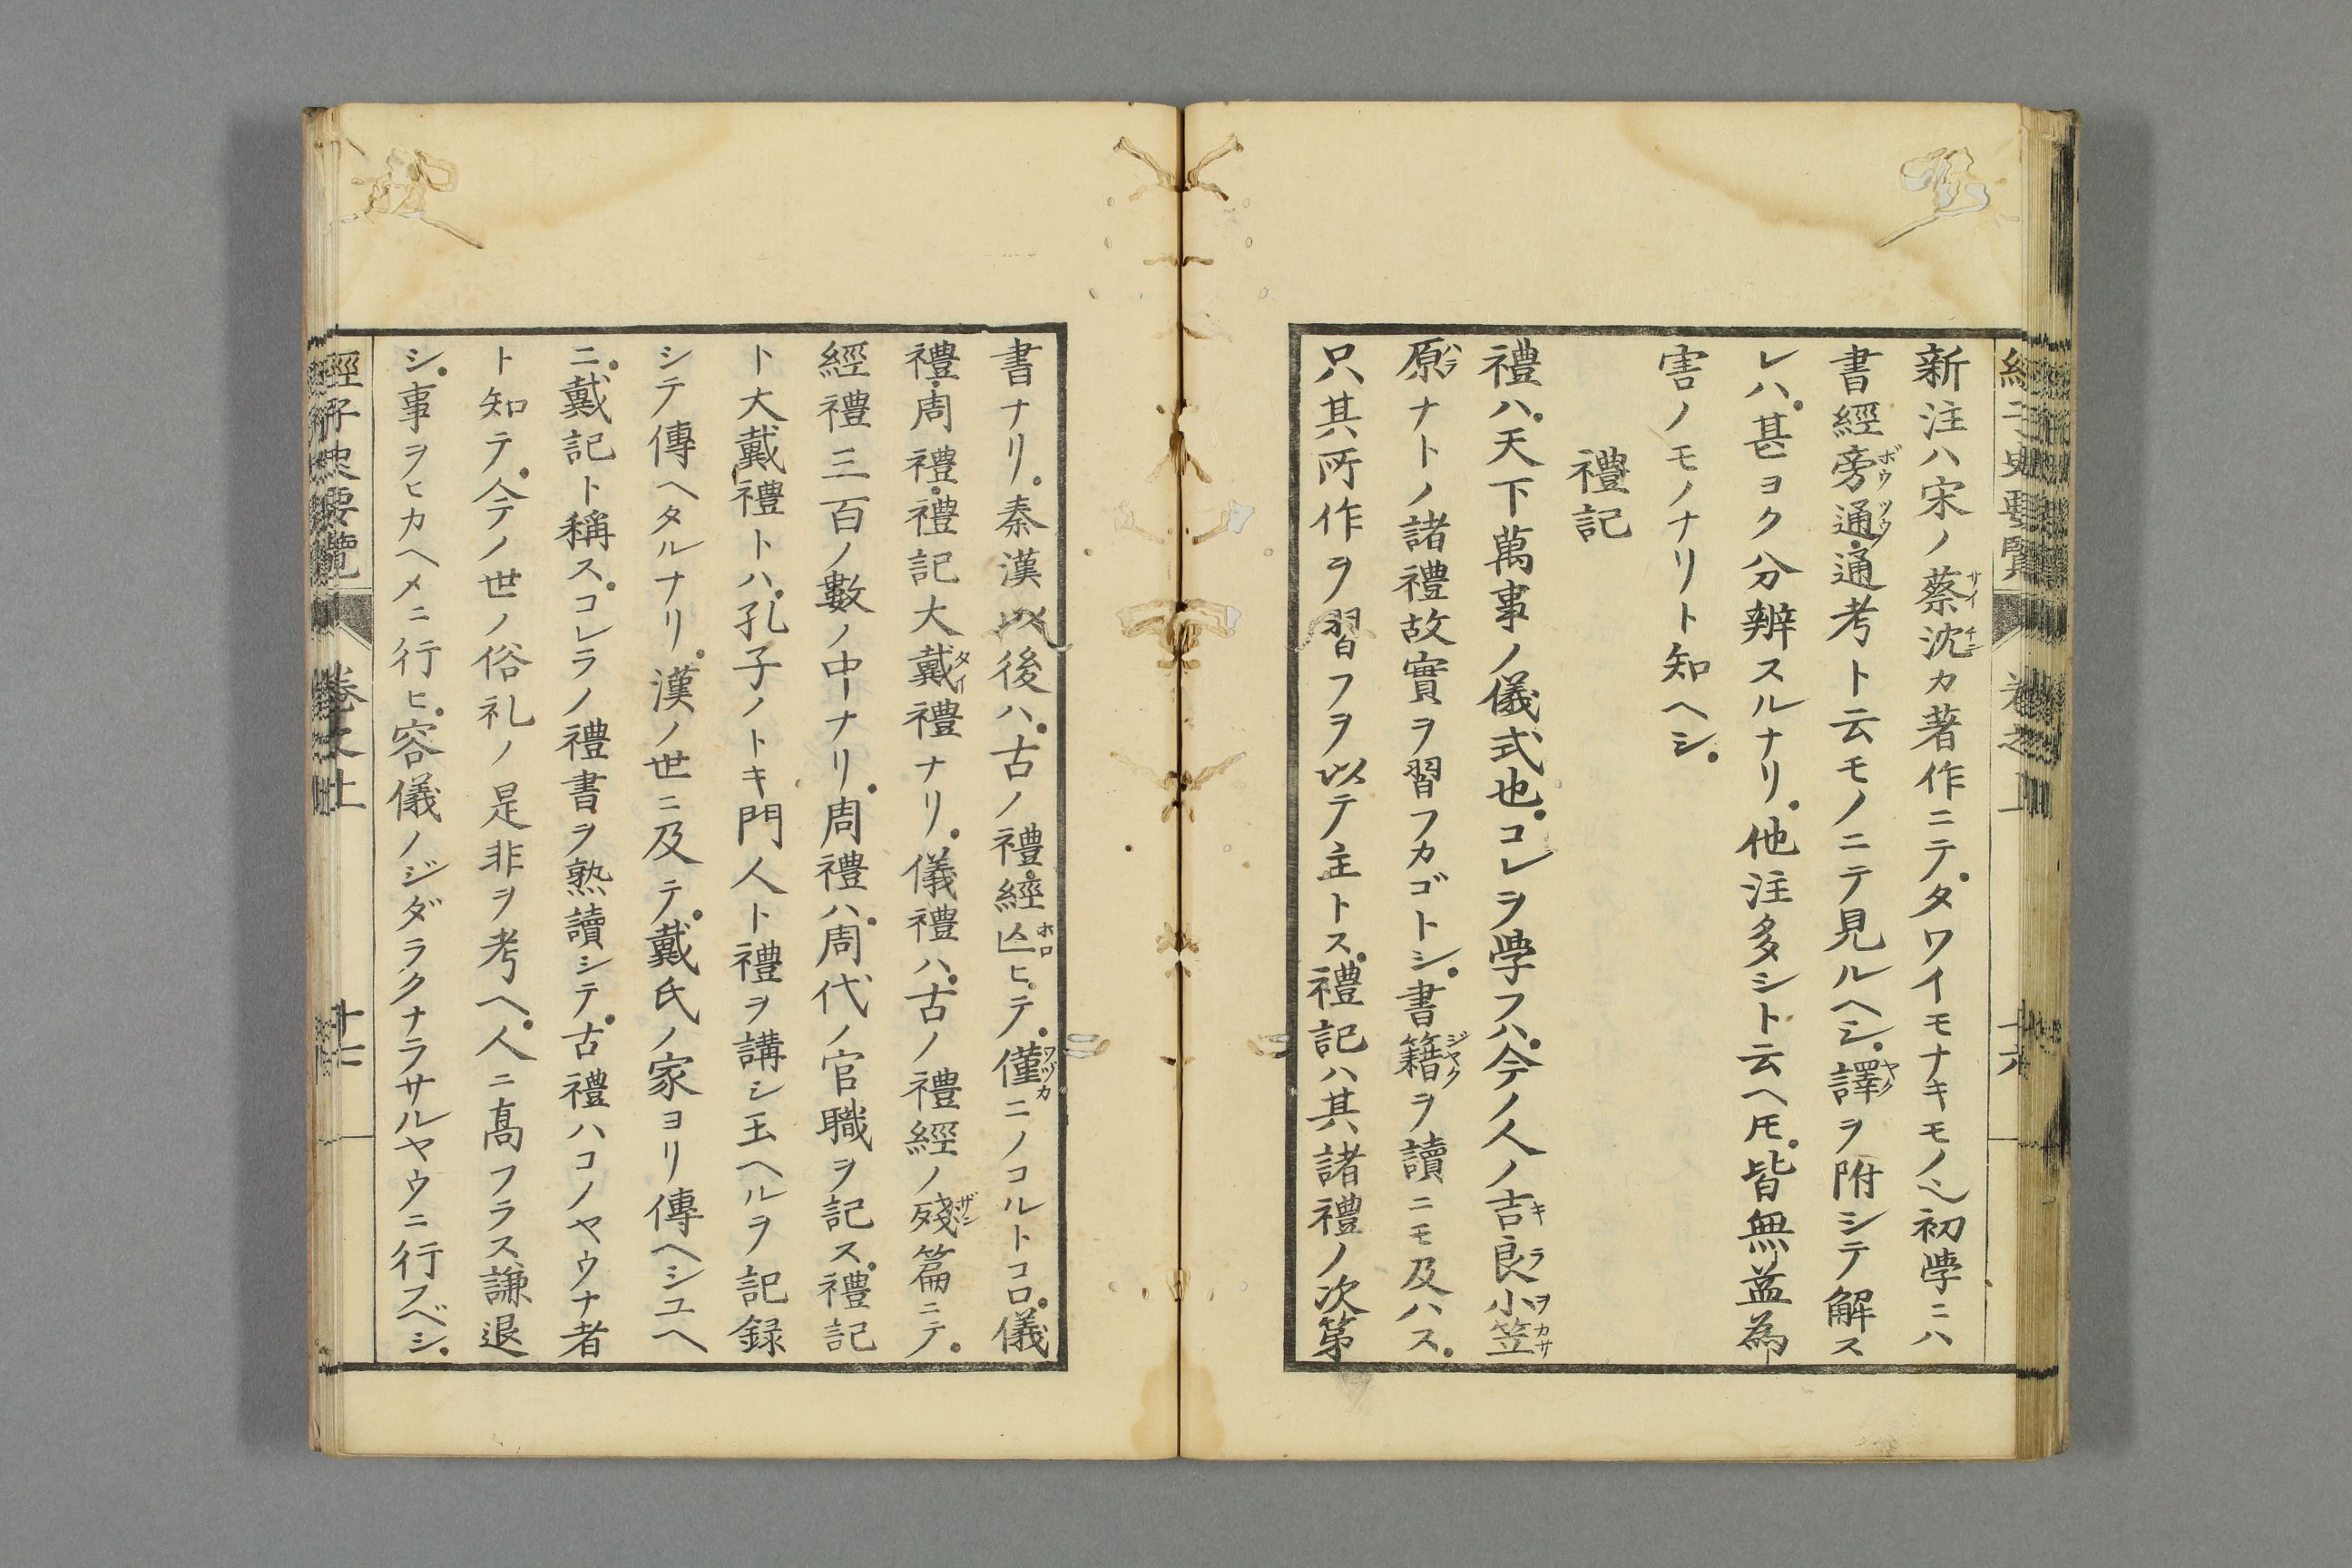 新注ハ宋ノ蔡沈カ著作ニテ。タワイモナキモノ也初學ニハ
書經旁通・通考ト云モノニテ見ルヘシ。譯ヲ附シテ解ス
レハ。甚ヨク分辨スルナリ。他注多シト云ヘ𪜈。皆無益為
害ノモノナリト知ヘシ。
禮記
禮ハ。天下萬事ノ儀式也。コレヲ学フハ。今ノ人ノ吉良小笠
原ナトノ諸禮故實ヲ習フカゴトシ。書籍ヲ讀ニモ及ハス。
只其所作ヲ習フヲ以テ主トス。禮記ハ其諸禮ノ次第
書ナリ。秦漢以後ハ。古ノ禮經亾ヒテ。僅ニノコルトコロ。儀
禮・周禮・禮記大戴禮ナリ。儀禮ハ。古ノ禮經ノ殘篇ニテ。
經禮三百ノ數ノ中ナリ。周禮ハ。周代ノ官職ヲ記ス。禮記
ト大戴禮トハ。孔子ノトキ門人ト禮ヲ講シ玉ヘルヲ記録
シテ傳ヘタルナリ。漢ノ世ニ及テ。戴氏ノ家ヨリ傳ヘシユヘ
ニ。戴記ト稱ス。コレラノ禮書ヲ熟讀シテ。古禮ハコノヤウナ者
ト知テ。今ノ世ノ俗礼ノ是非ヲ考ヘ。人ニ髙フラス。謙退
シ。事ヲヒカヘメニ行ヒ。容儀ノジダラクナラサルヤウニ行フベシ。
經子史要覽
卷之上